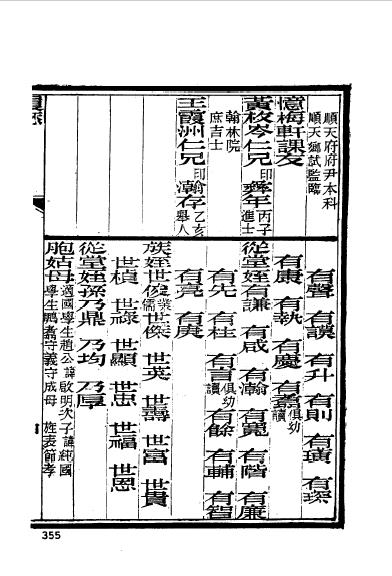 順天府府尹本科
順天鄉試監臨
憶梅軒課友
黃枚岑仁兄印彝年丙子進士
翰林院
庶吉士
王霞洲仁兄印瀚存乙亥舉人
有聲 有謨 有升 有則 有璜 有琛
有康 有執 有慶 有燾俱幼讀
從堂姪有謙 有咸 有瀚 有寬 有階 有廉
有先 有柱 有吉俱幼讀 有餘 有輔 有智
有亮 有庚
族姪世俊業儒 世傑 世英 世壽 世富 世貴
世楨 世祿 世顯 世忠 世福 世恩
從堂姪孫乃鼎 乃均 乃厚
胞姑母適國學生趙公諱啟明次子諱純國
學生翥守義守成母 旌表節孝
355